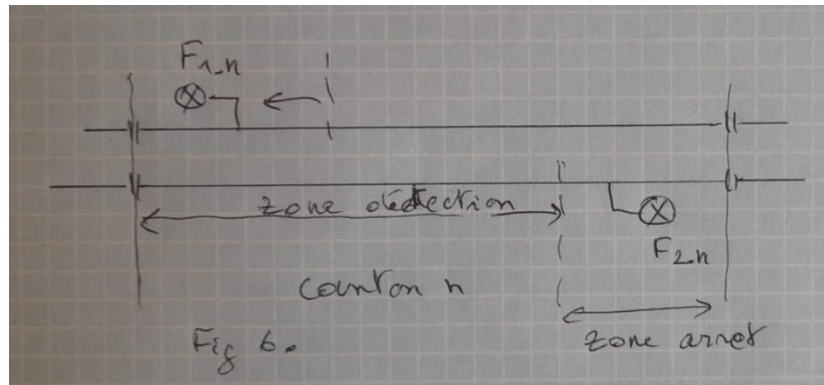 F1_n
zone détection
F2_n
canton n
Fig 6.
zone arret